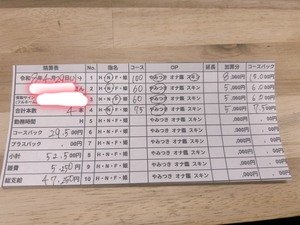 精算表 No. 指名 コース OP 延長 加算分 コースバック
令和 年 月29日 1 H・N・F・姫 100 やみつき オナ鑑 スキン 8,000円 15.00円
さん 2 H・N・F・姫 60 やみつき オナ鑑 スキン 5,000円 6.00円
3 H・N・F・姫 60 やみつき オナ鑑 スキン 5,000円 6.00円
合計本数 4本 4 H・N・F・姫 75 やみつき オナ鑑 スキン 5,000円 7.500円
勤務時間 H 5 H・N・F・姫 やみつき オナ鑑 スキン ,000円 .00円
コースバック 29,500円 6 H・N・F・姫 やみつき オナ鑑 スキン ,000円 .00円
プラスバック .00円 7 H・N・F・姫 やみつき オナ鑑 スキン ,000円 .00円
小計 52,500円 8 H・N・F・姫 やみつき オナ鑑 スキン ,000円 .00円
雑費 5,250円 9 H・N・F・姫 やみつき オナ鑑 スキン ,000円 .00円
総支給 47,250円 10 H・N・F・姫 やみつき オナ鑑 スキン ,000円 .00円